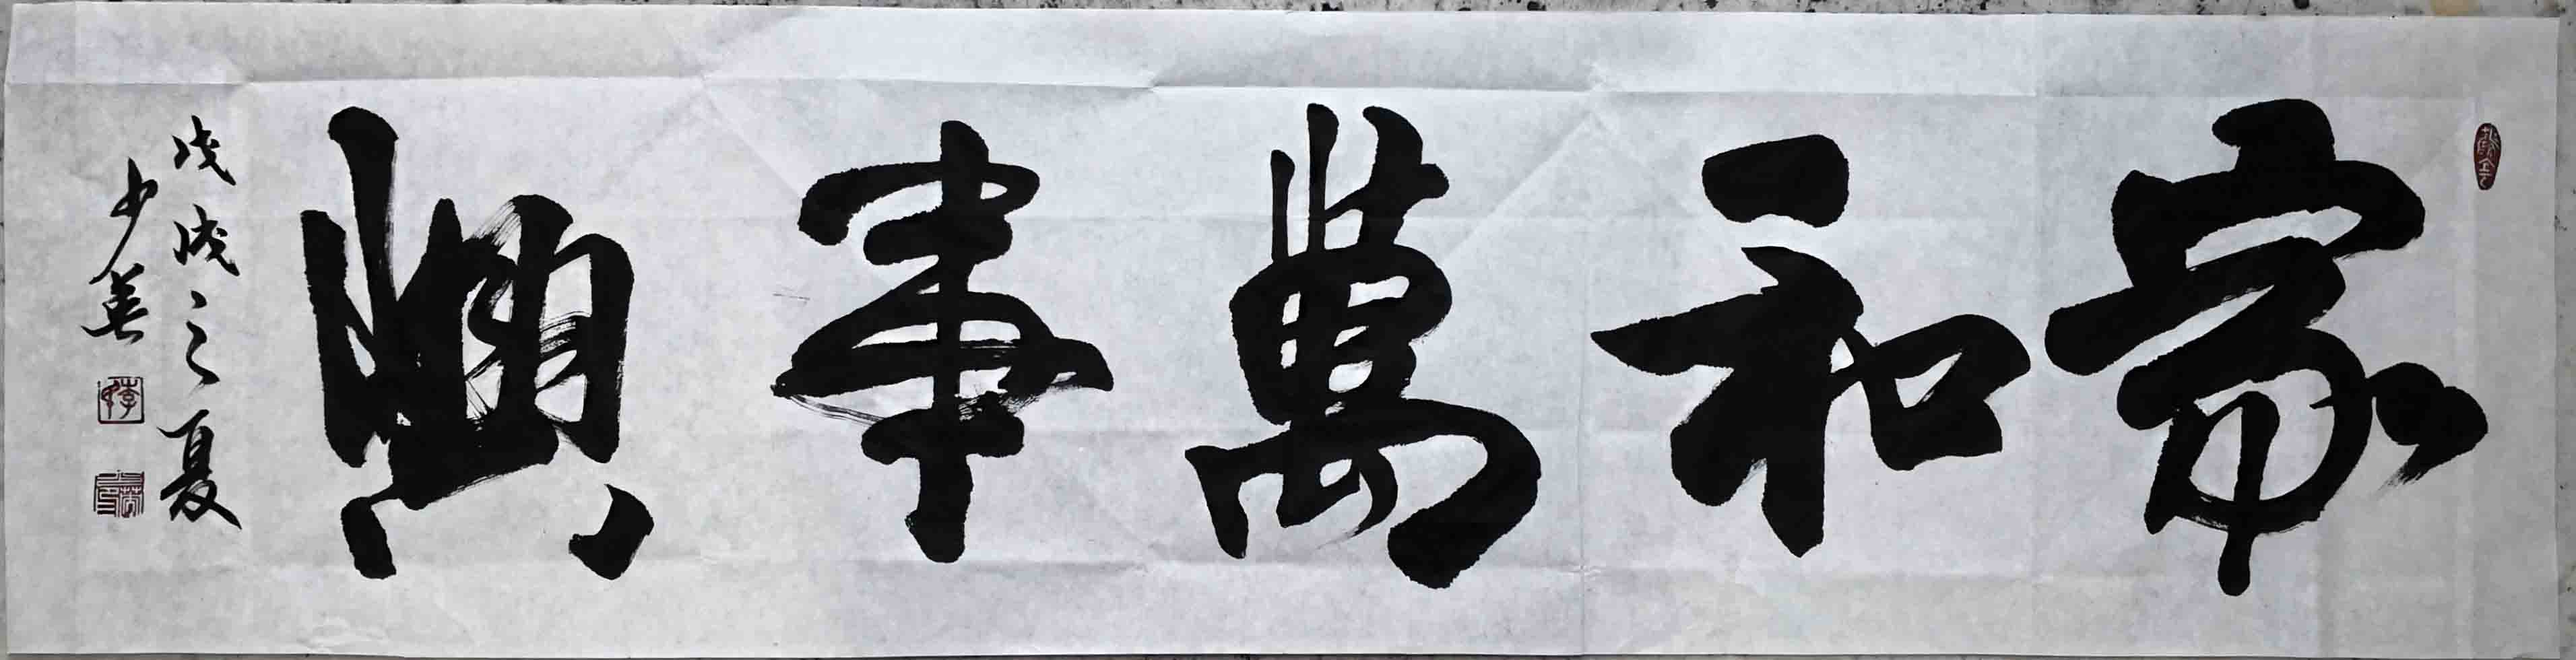 家和萬事興
戊戌之夏
少英